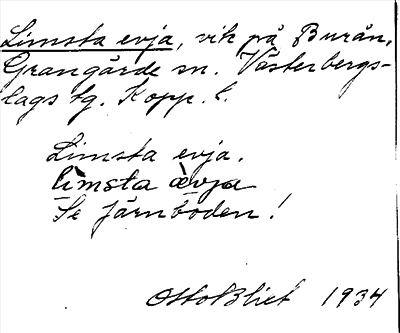 Limsta evja, vik på Burån,
Grangärde sn. Västerbergs-
lags tg. Kopp. l.
Limsta evja.
lìmsta ævja
Se Järnboden!
Otto Blixt 1934